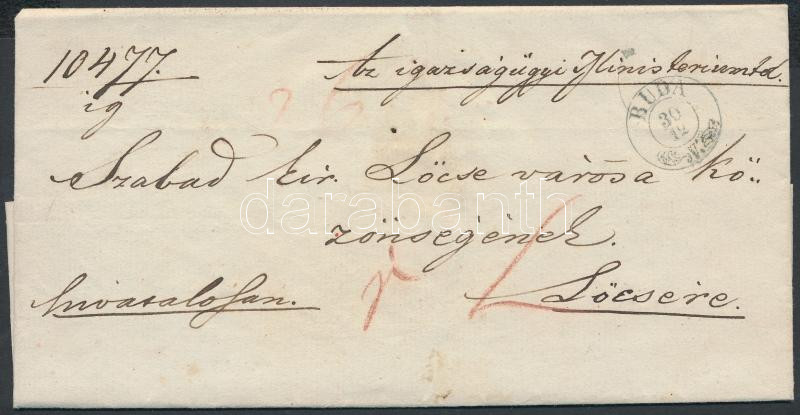 10477.
ig
Az igazságügyi Ministeriumtól.
BUDA
30
12
Szabad kir. Lőcse városa kö„
zönségének.
hivatalosan.
Lőcsére.
darabanth